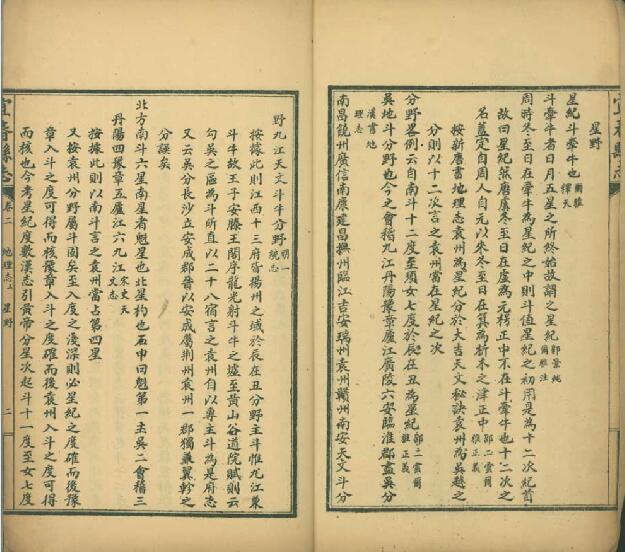 宜春縣志
星野
星紀斗牽牛也爾雅釋天
斗牽牛者日月五星之所終始故謂之星紀郭景純爾雅注
周時冬至日在牽牛為星紀之中則斗值星紀之初用是為十二次紀首
故曰星紀然唐虞冬至日在虛為元枵正中不在斗牽牛也十二次之
名蓋定自周人自元以來冬至日在箕為析木之津正中邵二雲爾雅正義
按新唐書地理志袁州為星紀分於大吉天文秘訣袁州為吳越之
分則以十二次言之袁州當在星紀之次
分野畧例云自南斗十二度至須女七度於辰在丑為星紀邵二雲爾雅正義
吳地斗分野也今之會稽九江丹陽豫章廬江廣陵六安臨淮郡盡吳分
漢書地理志
南昌饒州廣信南康建昌撫州臨江吉安瑞州袁州贛州南安天文斗分
野九江天文斗牛分野明一統志
按據此則江西十三府皆揚州之域於辰在丑分野主斗惟九江兼
斗牛故王子安滕王閣序龍光射斗牛之墟至黃山谷道院賦則云
句吳之區為斗所直以二十八宿言之袁州自以專主斗為是府志
又云吳分長沙立安成郡晉以安成屬荊州袁州一郡獨兼翼軫之
分誤矣
北方南斗六星南星者魁星也北星杓也石申曰魁第一主吳二會稽三
丹陽四豫章五廬江六九江宋史天文志
按據此則以南斗言之袁州當占第四星
又按袁州分野屬斗固矣至入度之淺深則必星紀之度確而後豫
章入斗之度可得而核豫章入斗之度確而後袁州入斗之度可得
而核也今考星紀度數漢志引黃帝分星次起斗十一度至女七度
宜春縣志 卷二 地理志上 星野 二